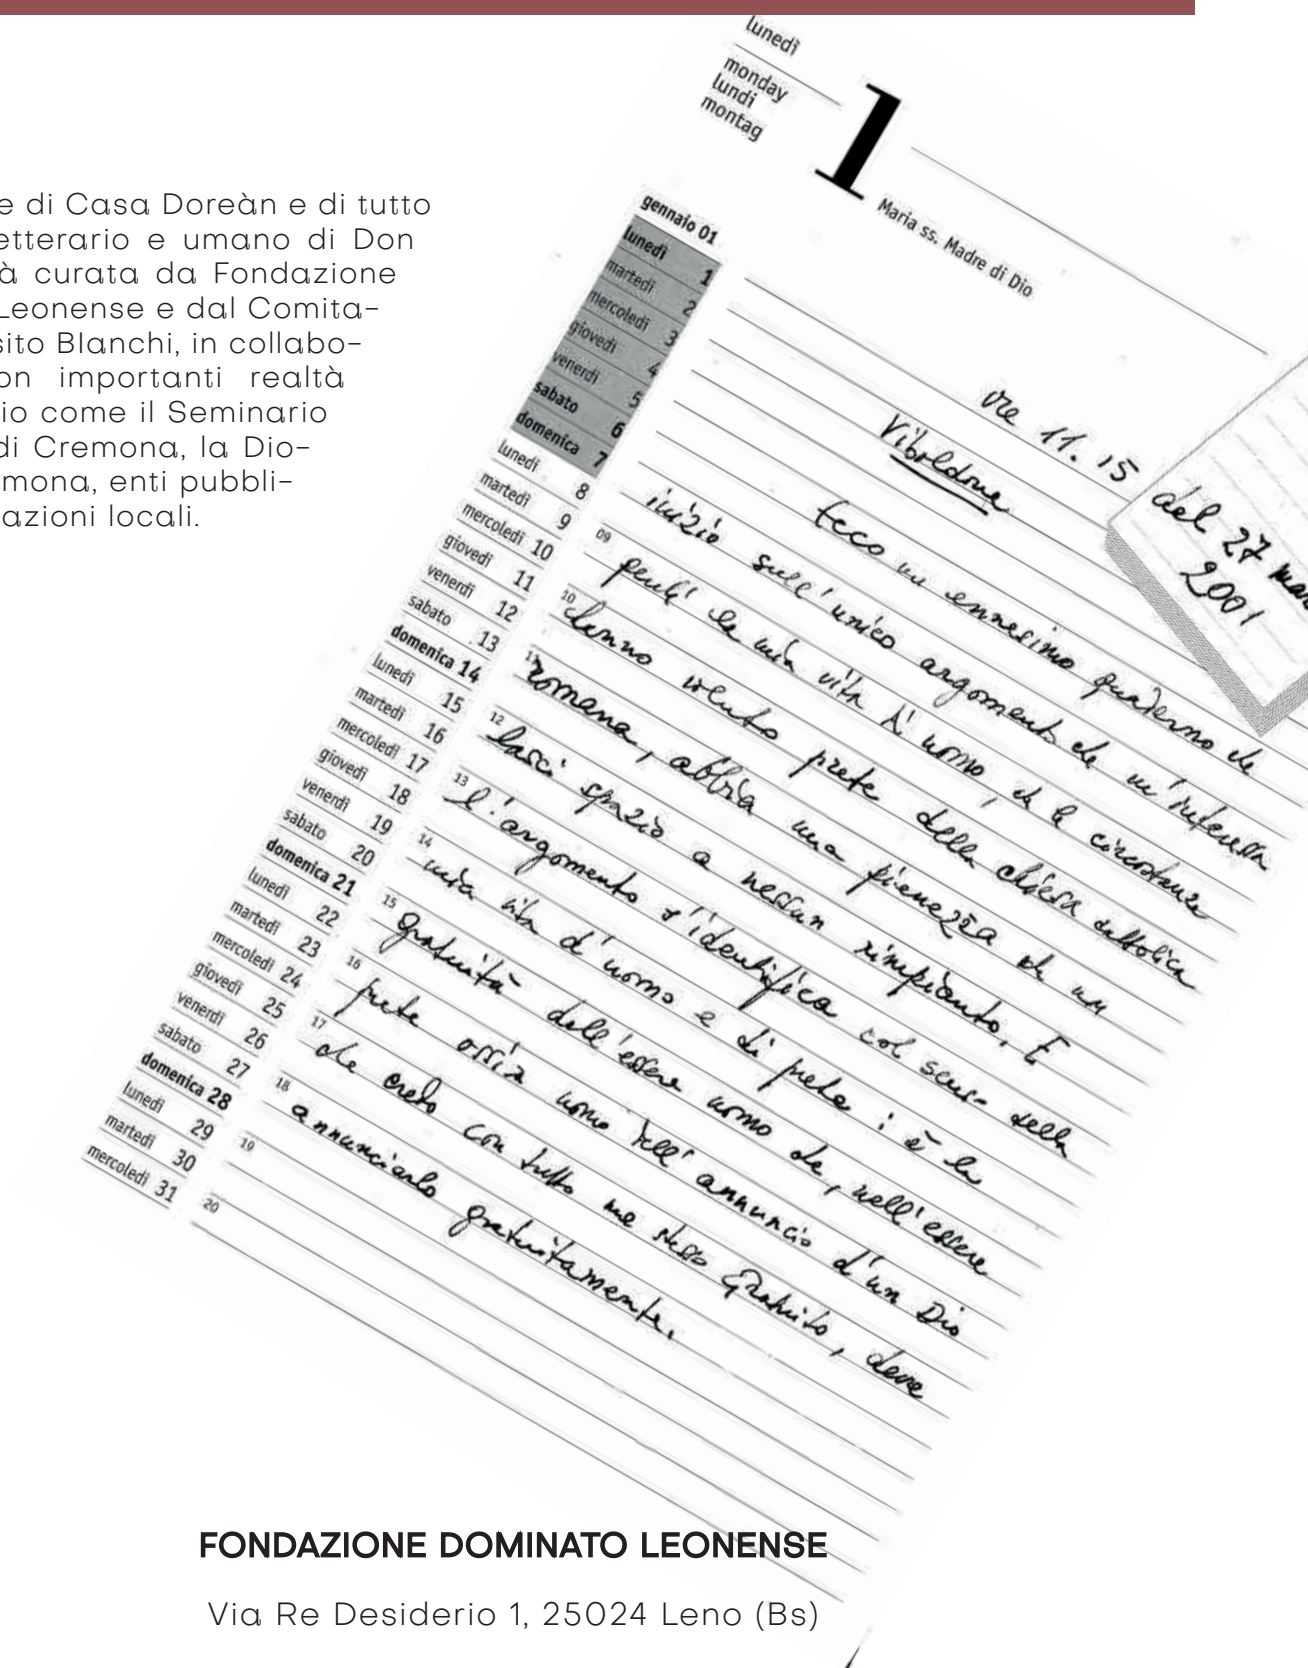 e di Casa Doreàn e di tutto
etterario e umano di Don
à curata da Fondazione
Leonense e dal Comita-
sito BIanchi, in collabo-
on importanti realtà
io come il Seminario
di Cremona, la Dio-
mona, enti pubbli-
azioni locali.
lunedì
monday
lundi
montag
1
Maria ss. Madre di Dio
gennaio 01
lunedì 1
martedì 2
mercoledì 3
giovedì 4
venerdì 5
sabato 6
domenica 7
lunedì 8
martedì 9
mercoledì 10
giovedì 11
venerdì 12
sabato 13
domenica 14
lunedì 15
martedì 16
mercoledì 17
giovedì 18
venerdì 19
sabato 20
domenica 21
lunedì 22
martedì 23
mercoledì 24
giovedì 25
venerdì 26
sabato 27
domenica 28
lunedì 29
martedì 30
mercoledì 31
ore 11.15 del 27 mar
2001
Viboldone
Ecco un ennesimo quaderno che
09 inizio sull'unico argomento che m'interessa
10 perché la mia vita d'uomo, che le circostanze
11 hanno voluto prete della chiesa cattolica
12 romana, abbia una pienezza che non
13 lasci spazio a nessun rimpianto. E
14 l'argomento s'identifica col senso della
15 mia vita d'uomo e di prete: è la
16 gratuità dell'essere uomo che, nell'essere
17 prete ossia uomo dell'annuncio d'un Dio
18 che credo con tutto me stesso Gratuito, deve
19 annunciarlo gratuitamente.
20
FONDAZIONE DOMINATO LEONENSE
Via Re Desiderio 1, 25024 Leno (Bs)